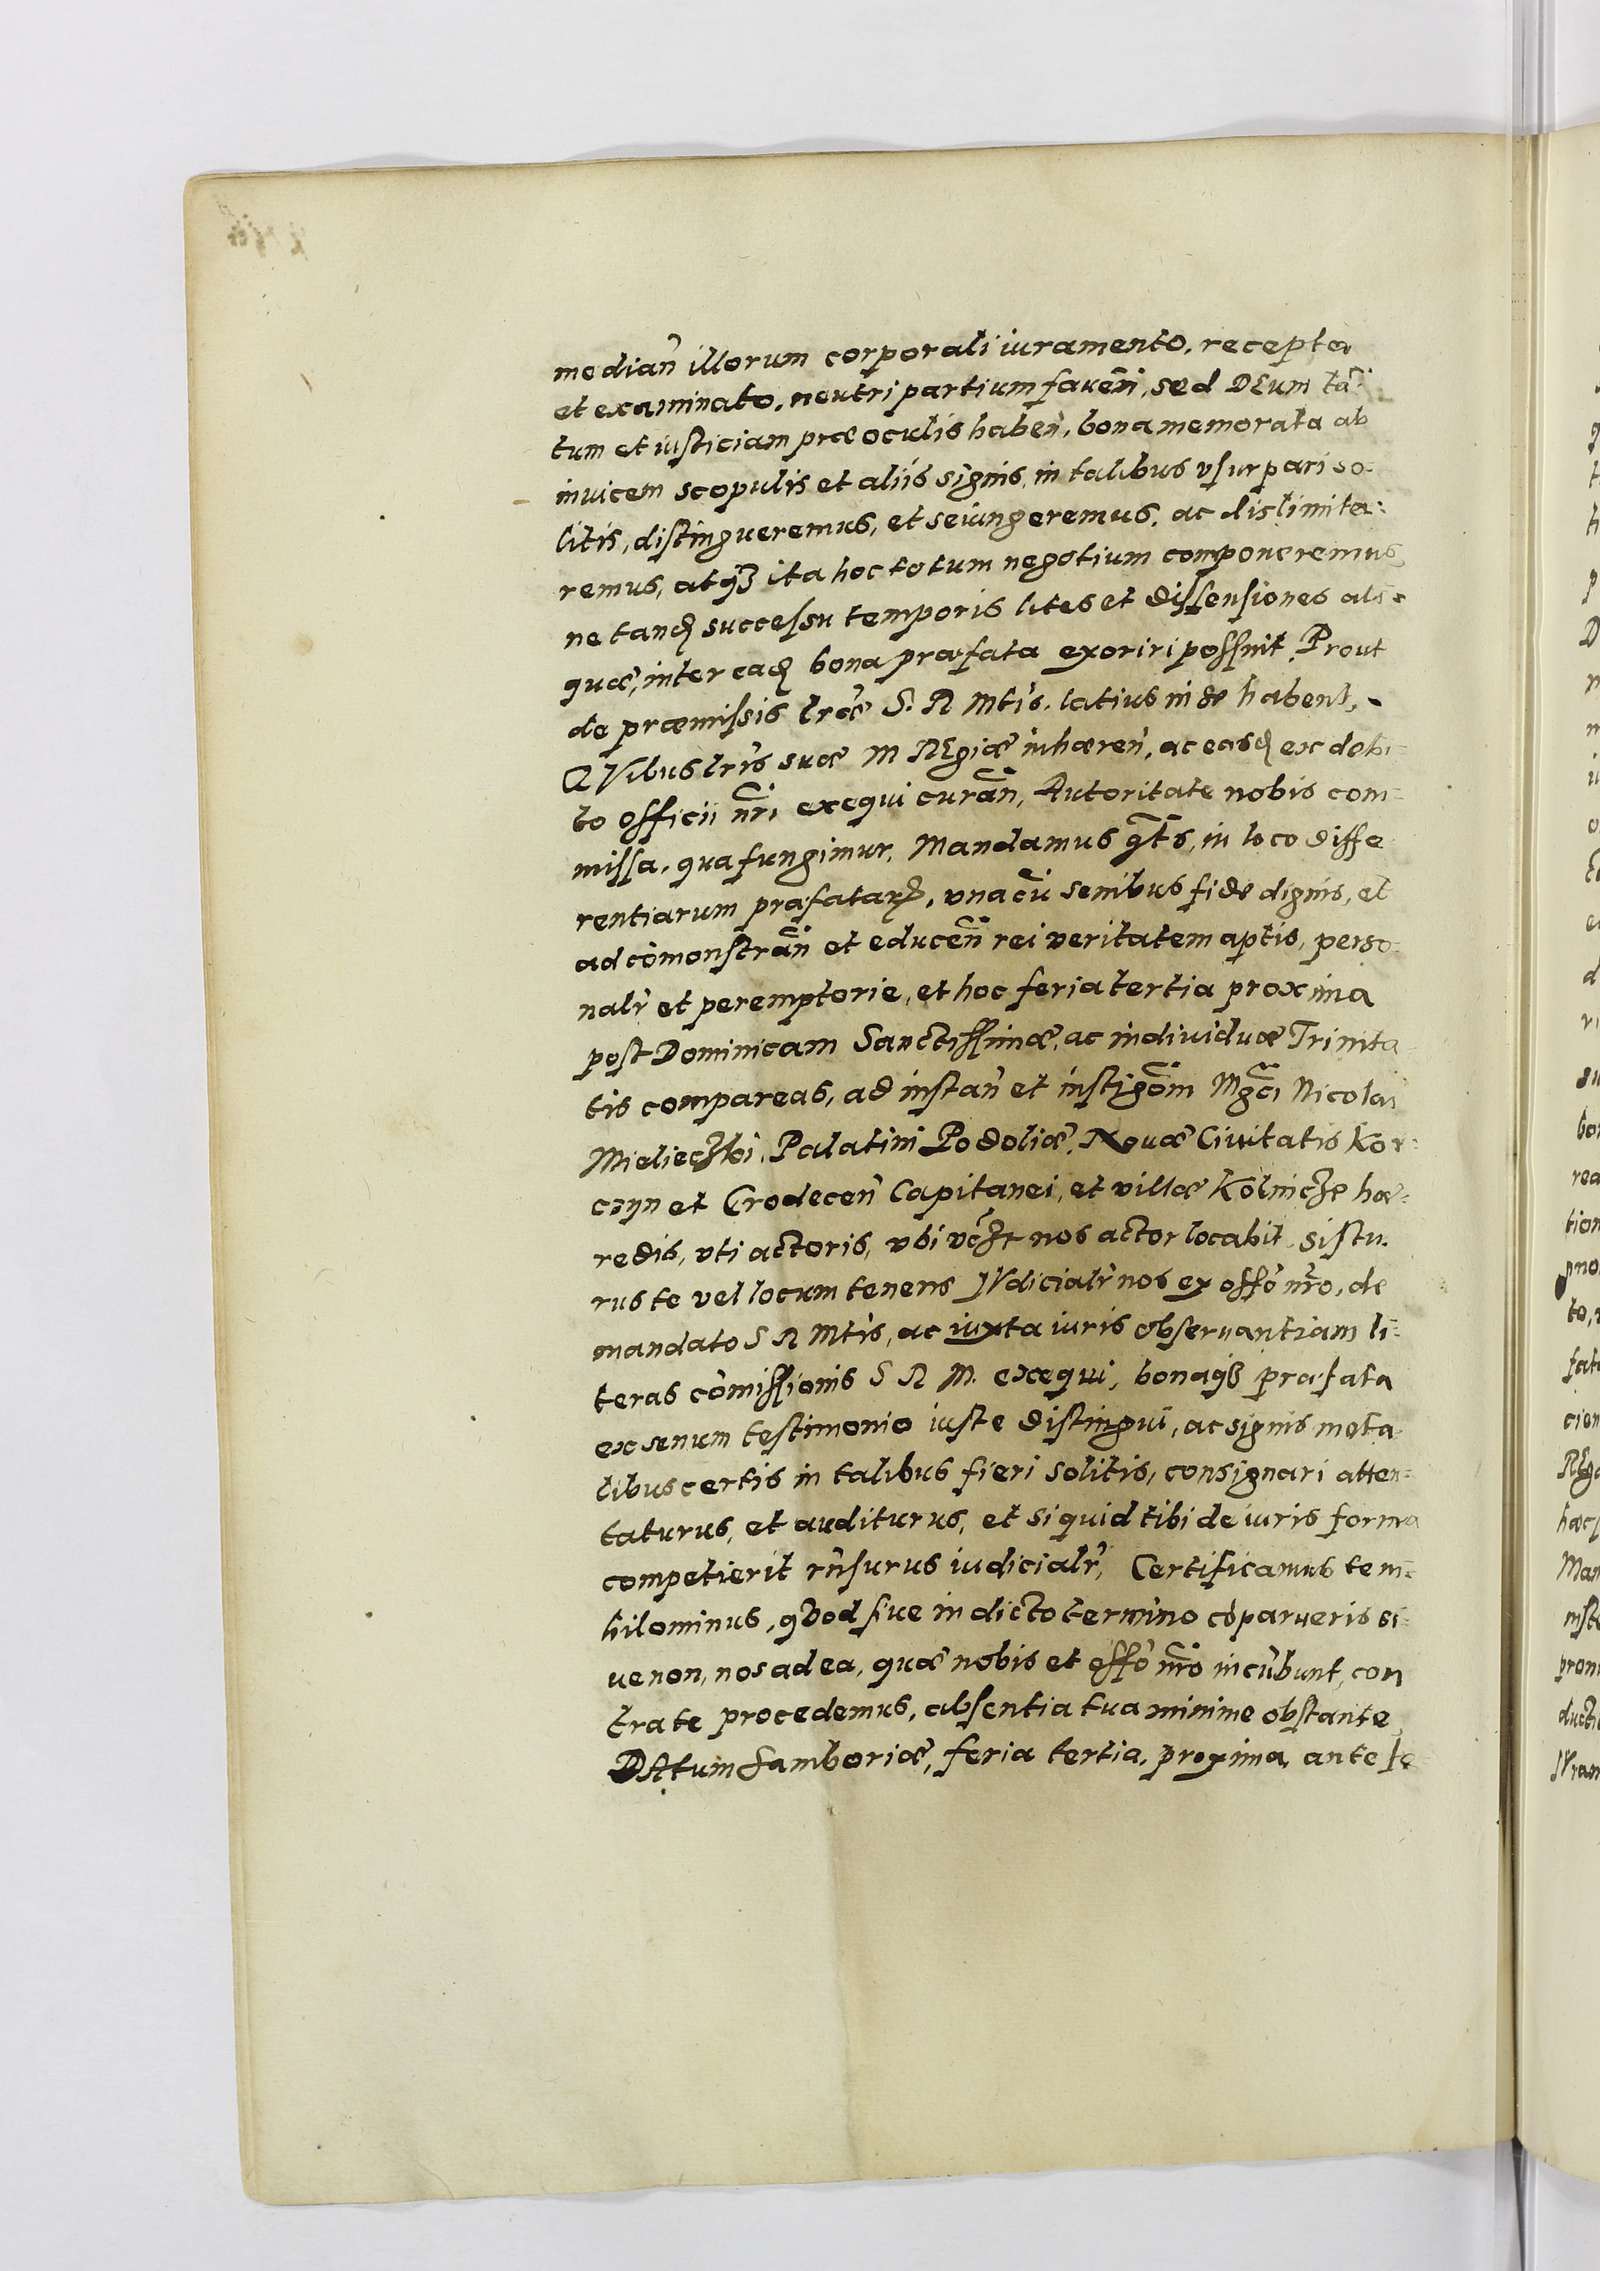 median̄ illorum corporali iuramento, recepta
et examinato, neutri partium faueñ, sed DEum tā⸗
tum et iusticiam præ oculis habeñ, bona memorata ab
inuicem scopulis et aliis signis, in talibus vsurpari so⸗
litis, distingueremus, et seiungeremus, ac dislimita⸗
remus, atqꝫ ita hoc totum negotium componeremus
ne tandꝫ successu temporis lites et dissensiones ali⸗
quæ, inter eadꝫ bona præfata exoriri possint. Prout
de præmissis lræ S. R Mtis. latius in se habent,
QVibus lris suæ M REgiæ inhæreñ, ac easdꝫ ex debi⸗
to officii nri exequi curañ, Autoritate nobis com⸗
missa, qua fungimur, Mandamus qts, in loco diffe
rentiarum præfatarꝫ, vna cū senibus fide dignis, et
ad cōmonstrañ et educeñ rei veritatem aptis, perso⸗
nalr et peremptorie, et hoc feria tertia proxima
post Dominicam Sanctissimæ, ac indiuiduæ Trinita
tis compareas, ad instañ et instigōm Mgci Nicolai
Mielieczki, Palatini Podoliæ, Nouæ Ciuitatis Kor⸗
czyn et Grodeceñ Capitanei, et villæ Kolnicze hæ⸗
redis, vti actoris, vbi vcꝫt nos actor locabit, sistu⸗
rus te vel locum tenens IVdicialr nos ex offō nro, de
mandato S R Mtis, ac iuxta iuris obseruantiam li⸗
teras cōmissionis S R M. exequi, bonaqꝫ præfata
ex senum testimonio iuste distingui, ac signis meta⸗
libus certis in talibus fieri solitis, consignari atten⸗
taturus, et auditurus, et si quid tibi de iuris forma
competierit rn̄surus iudicialr, Certificamus te ni⸗
hilominus, qVod siue in dicto termino cōparueris si⸗
ue non, nos ad ea, quæ nobis et offō nro incūbunt, con
tra te procedemus, absentia tua minime obstante
DAtum Samboriæ, feria tertia, proxima ante fe